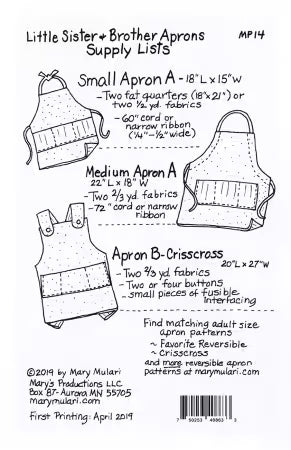 Little Sister & Brother Aprons
Supply Lists
MP14
Small Apron A - 18"L x 15"W
- Two fat quarters (18"x 21") or
two ½ yd. fabrics
- 60" cord or
narrow ribbon
(¼"-½" wide)
Medium Apron A
22"L x 18"W
- Two ⅔ yd. fabrics
- 72" cord or narrow
ribbon
Apron B-Crisscross
20"L x 27"W
- Two ⅔ yd fabrics
- Two or four buttons
- small pieces of fusible
interfacing
Find matching adult size
apron patterns
~ Favorite Reversible
~ Crisscross
and more reversible apron
patterns at marymulari.com.
©2019 by Mary Mulari
Mary's Productions LLC
Box 87-Aurora, MN 55705
marymulari.com
First Printing: April 2019
7 50253 48863 3